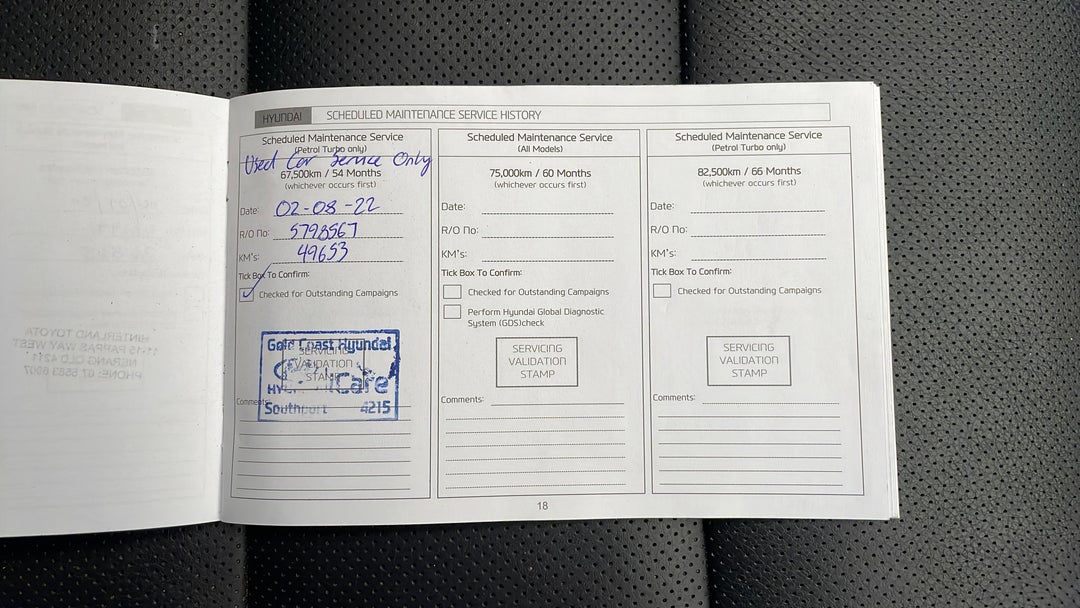 HYUNDAI
SCHEDULED MAINTENANCE SERVICE HISTORY
Scheduled Maintenance Service
(Petrol Turbo only)
Used Car Service Only
67,500km / 54 Months
(whichever occurs first)
Date: 02-08-22
R/O No: 5798567
KM's: 49653
Tick Box To Confirm:
Checked for Outstanding Campaigns
Gold Coast Hyundai
SERVICING
VALIDATION
STAMP
iCare
Southport 4215
Comments:
Scheduled Maintenance Service
(All Models)
75,000km / 60 Months
(whichever occurs first)
Date:
R/O No:
KM's:
Tick Box To Confirm:
Checked for Outstanding Campaigns
Perform Hyundai Global Diagnostic
System (GDS)check
SERVICING
VALIDATION
STAMP
Comments:
Scheduled Maintenance Service
(Petrol Turbo only)
82,500km / 66 Months
(whichever occurs first)
Date:
R/O No:
KM's:
Tick Box To Confirm:
Checked for Outstanding Campaigns
SERVICING
VALIDATION
STAMP
Comments:
18